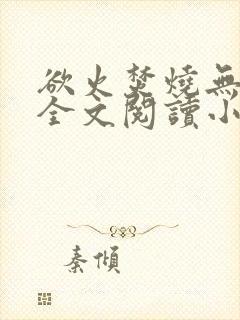 欲火焚燒無
全文閱讀小
秦傾